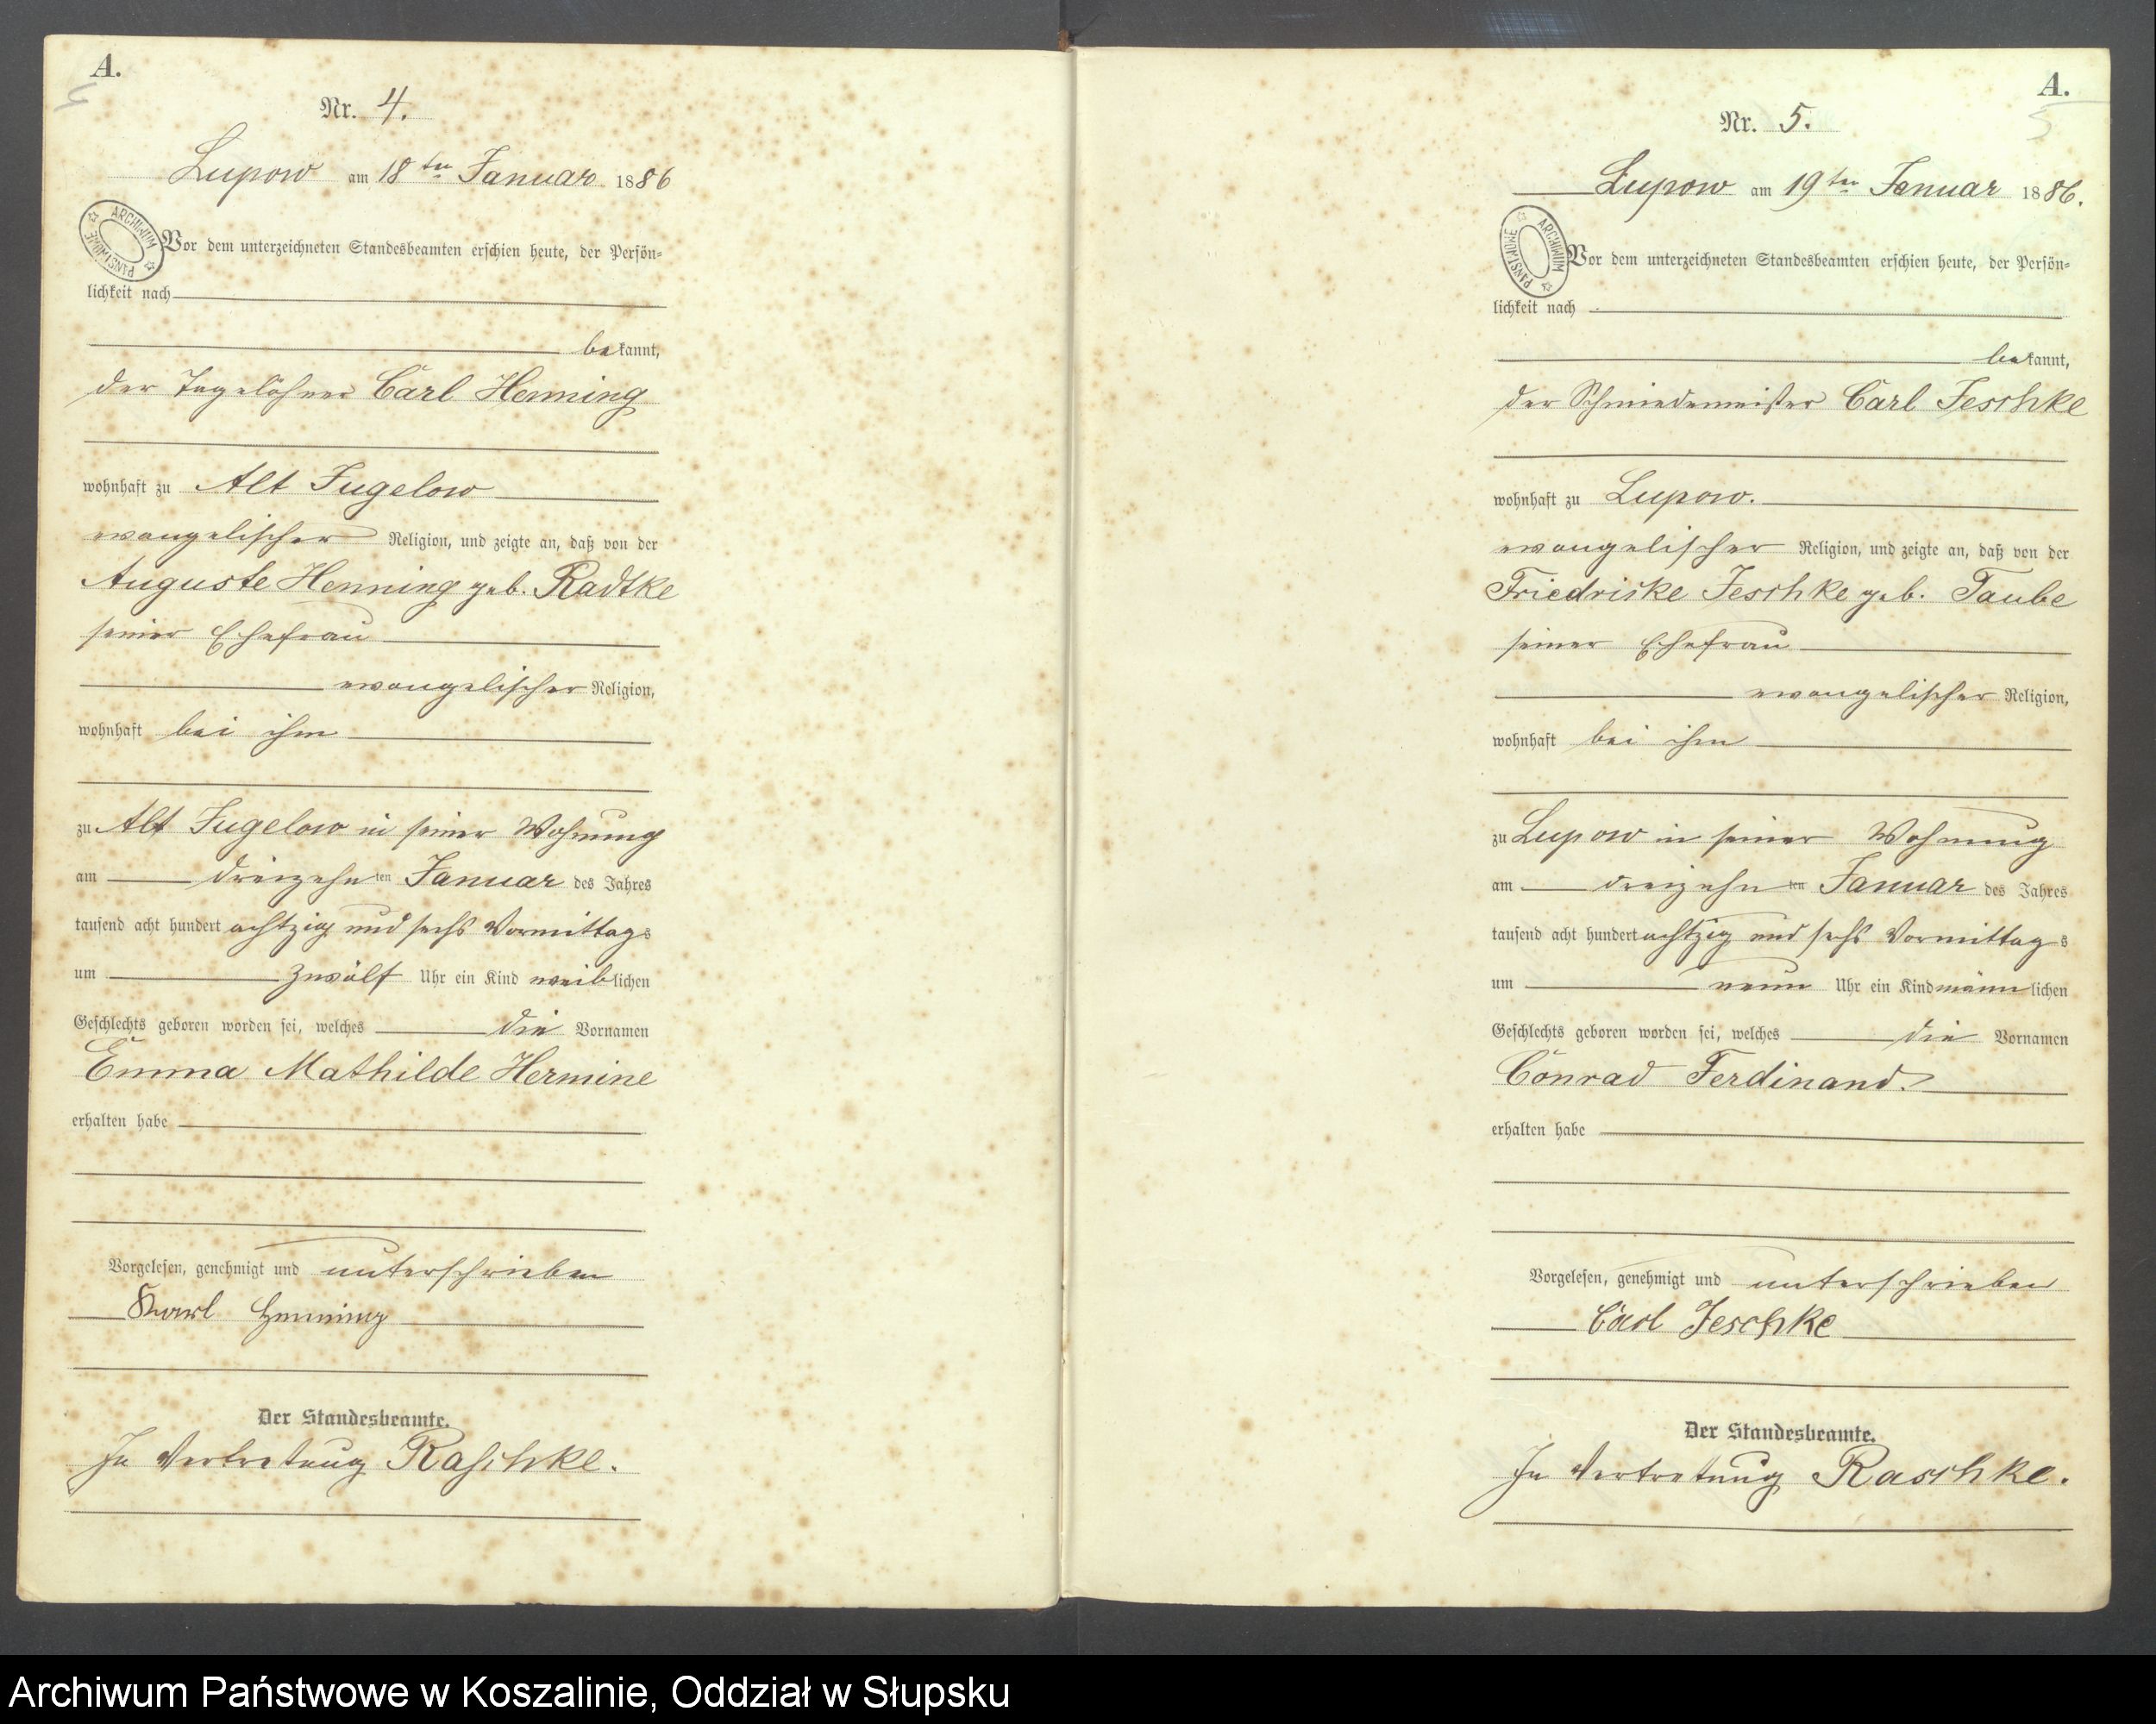 A.
Nr. 4.
Lupow am 18ten Januar 1886
ARCHIWUM PAŃSTWOWE
Vor dem unterzeichneten Standesbeamten erschien heute, der Persön-
lichkeit nach
bekannt,
der Tagelöhner Carl Henning
wohnhaft zu Alt Jugelow
evangelischer Religion, und zeigte an, daß von der
Auguste Henning geb. Radtke
seiner Ehefrau
evangelischer Religion,
wohnhaft bei ihm
zu Alt Jugelow in seiner Wohnung
am dreizehnten Januar des Jahres
tausend acht hundert achtzig und sechs Vormittags
um zwölf Uhr ein Kind weiblichen
Geschlechts geboren worden sei, welches die Vornamen
Emma Mathilde Hermine
erhalten habe
Vorgelesen, genehmigt und unterschrieben
Karl Henning
Der Standesbeamte.
In Vertretung Raschke.
A.
5
Nr. 5.
Lupow am 19ten Januar 1886.
ARCHIWUM PAŃSTWOWE
Vor dem unterzeichneten Standesbeamten erschien heute, der Persön-
lichkeit nach
bekannt,
der Schmiedemeister Carl Jeschke
wohnhaft zu Lupow.
evangelischer Religion, und zeigte an, daß von der
Friedrike Jeschke geb. Taube
seiner Ehefrau
evangelischer Religion,
wohnhaft bei ihm
zu Lupow in seiner Wohnung
am dreizehnten Januar des Jahres
tausend acht hundert achtzig und sechs Vormittags
um neun Uhr ein Kind männlichen
Geschlechts geboren worden sei, welches die Vornamen
Conrad Ferdinand.
erhalten habe
Vorgelesen, genehmigt und unterschrieben
Carl Jeschke
Der Standesbeamte.
In Vertretung Raschke.
Archiwum Państwowe w Koszalinie, Oddział w Słupsku